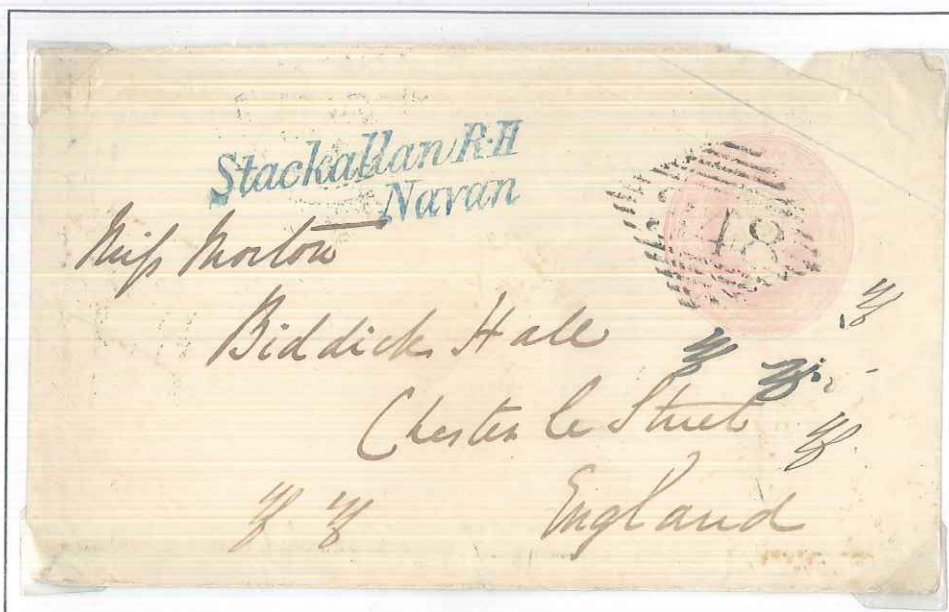 Stackallan R·H
Navan
48
Miss Morton
Biddick Hall
Chester le Street
England